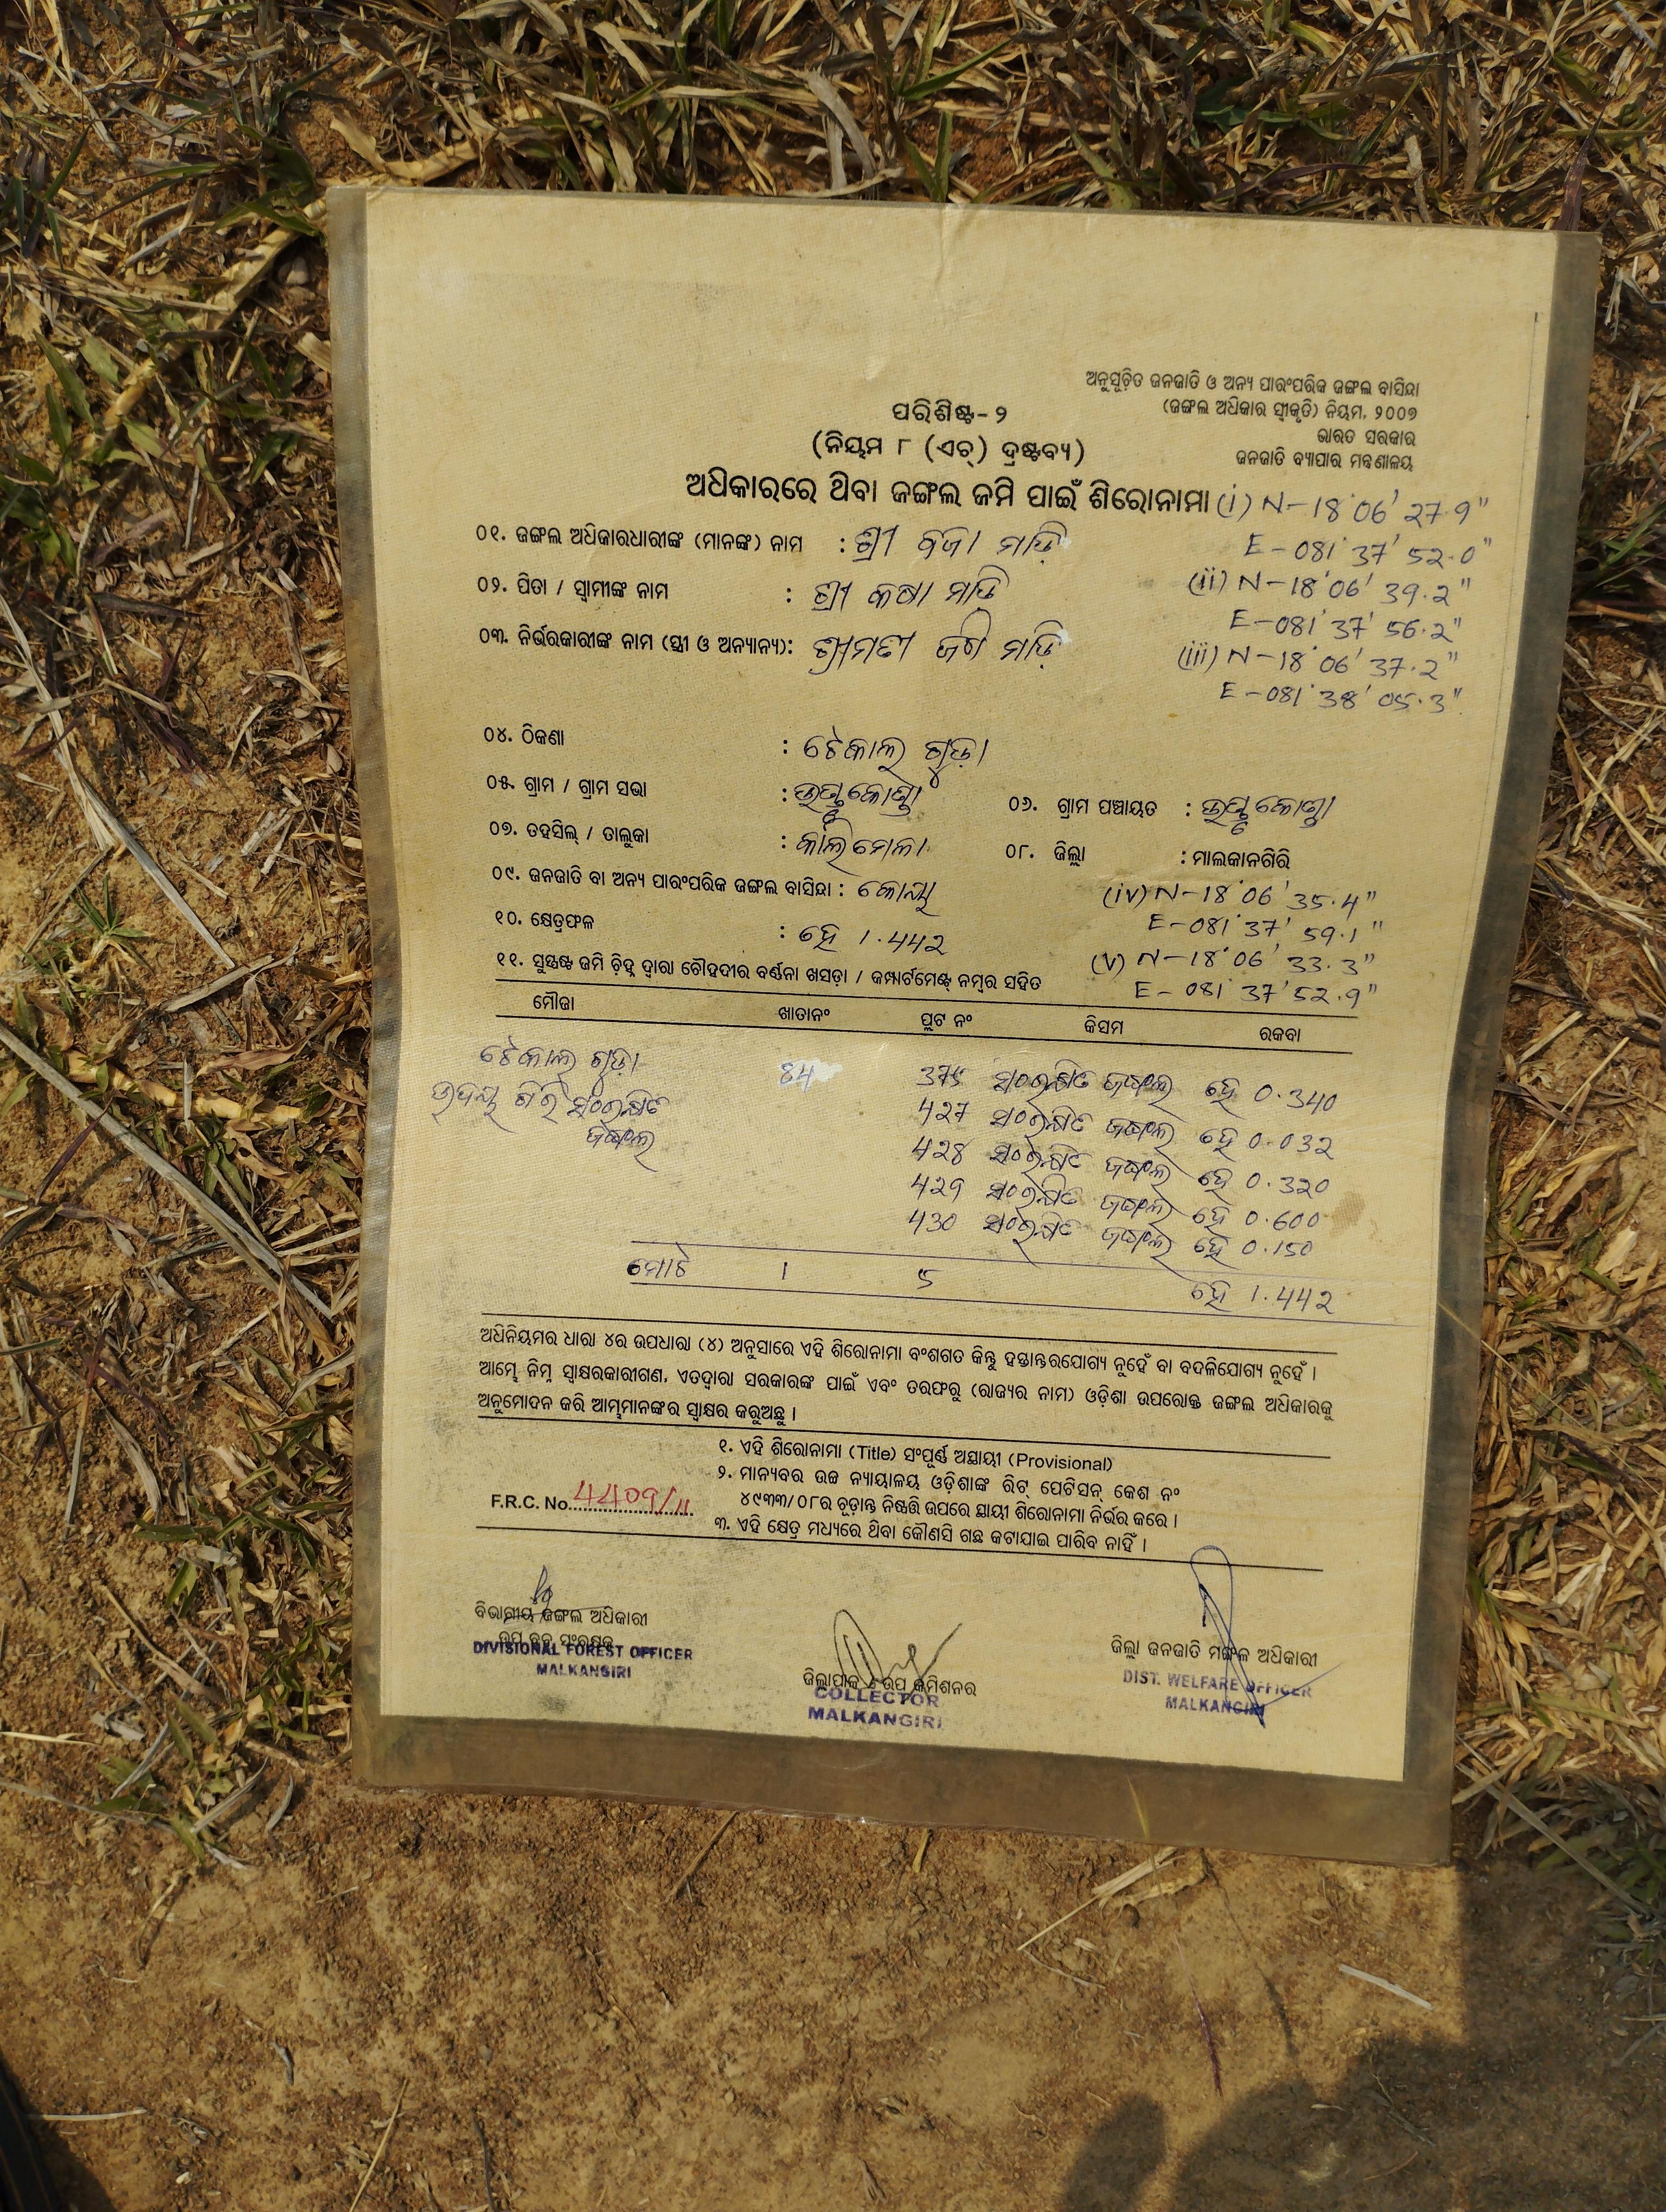 ଅନୁସୂଚିତ ଜନଜାତି ଓ ଅନ୍ୟ ପାରଂପରିକ ଜଙ୍ଗଲ ବାସିନ୍ଦା
(ଜଙ୍ଗଲ ଅଧିକାର ସ୍ୱୀକୃତି) ନିୟମ, ୨୦୦୭
ଭାରତ ସରକାର
ଜନଜାତି ବ୍ୟାପାର ମନ୍ତ୍ରଣାଳୟ
ପରିଶିଷ୍ଟ- ୨
(ନିୟମ ୮ (ଏଚ୍) ଦ୍ରଷ୍ଟବ୍ୟ)
ଅଧିକାରରେ ଥିବା ଜଙ୍ଗଲ ଜମି ପାଇଁ ଶିରୋନାମା
(i) N-18°06' 27.9"
E-081°37' 52.0"
(ii) N-18°06' 39.2"
E-081°37' 56.2"
(iii) N-18°06' 37.2"
E-081°38' 05.3"
୦୧. ଜଙ୍ଗଲ ଅଧିକାରଧାରୀଙ୍କ (ମାନଙ୍କ) ନାମ : ଶ୍ରୀ ମାଡ଼ି
୦୨. ପିତା / ସ୍ୱାମୀଙ୍କ ନାମ : ଶ୍ରୀ ମାଡି
୦୩. ନିର୍ଭରକାରୀଙ୍କ ନାମ (ସ୍ତ୍ରୀ ଓ ଅନ୍ୟାନ୍ୟ): ଶ୍ରୀମତୀ ମାଡ଼ି
୦୪. ଠିକଣା : ଟେକାଲ ଗୁଡ଼ା
୦୫. ଗ୍ରାମ / ଗ୍ରାମ ସଭା :
୦୬. ଗ୍ରାମ ପଞ୍ଚାୟତ :
୦୭. ତହସିଲ୍ / ତାଲୁକା : କାଲିମେଳା
୦୮. ଜିଲ୍ଲା : ମାଲକାନଗିରି
୦୯. ଜନଜାତି ବା ଅନ୍ୟ ପାରଂପରିକ ଜଙ୍ଗଲ ବାସିନ୍ଦା : କୋୟା
(iv) N-18°06' 35.4"
E-081°37' 59.1"
୧୦. କ୍ଷେତ୍ରଫଳ : ହେ 1.442
(v) N-18°06' 33.3"
E-081°37' 52.9"
୧୧. ସୁସ୍ପଷ୍ଟ ଜମି ଚିହ୍ନ ଦ୍ୱାରା ଚୌହଦୀର ବର୍ଣ୍ଣନା ଖସଡ଼ା / କମ୍ପାର୍ଟମେଣ୍ଟ ନମ୍ବର ସହିତ
ମୌଜା ଖାତାନଂ ପ୍ଲଟ ନଂ କିସମ ରକବା
ଟେକାଲ ଗୁଡ଼ା 84 375 ସଂରକ୍ଷିତ ଜଙ୍ଗଲ ହେ 0.340
ଉଦୟ ଗିରି ସଂରକ୍ଷିତ 427 ସଂରକ୍ଷିତ ଜଙ୍ଗଲ ହେ 0.032
ଜଙ୍ଗଲ 428 ସଂରକ୍ଷିତ ଜଙ୍ଗଲ ହେ 0.320
429 ସଂରକ୍ଷିତ ଜଙ୍ଗଲ ହେ 0.600
430 ସଂରକ୍ଷିତ ଜଙ୍ଗଲ ହେ 0.150
ମୋଟ 1 5 ହେ 1.442
ଅଧିନିୟମର ଧାରା ୪ର ଉପଧାରା (୪) ଅନୁସାରେ ଏହି ଶିରୋନାମା ବଂଶଗତ କିନ୍ତୁ ହସ୍ତାନ୍ତରଯୋଗ୍ୟ ନୁହେଁ ବା ବଦଳିଯୋଗ୍ୟ ନୁହେଁ ।
ଆମ୍ଭେ ନିମ୍ନ ସ୍ୱାକ୍ଷରକାରୀଗଣ, ଏତଦ୍ୱାରା ସରକାରଙ୍କ ପାଇଁ ଏବଂ ତରଫରୁ (ରାଜ୍ୟର ନାମ) ଓଡ଼ିଶା ଉପରୋକ୍ତ ଜଙ୍ଗଲ ଅଧିକାରକୁ
ଅନୁମୋଦନ କରି ଆମ୍ଭମାନଙ୍କର ସ୍ୱାକ୍ଷର କରୁଅଛୁ ।
୧. ଏହି ଶିରୋନାମା (Title) ସଂପୂର୍ଣ୍ଣ ଅସ୍ଥାୟୀ (Provisional)
୨. ମାନ୍ୟବର ଉଚ୍ଚ ନ୍ୟାୟାଳୟ ଓଡ଼ିଶାଙ୍କ ରିଟ୍ ପେଟିସନ୍ କେଶ ନଂ
୪୯୩୩/୦୮ର ଚୂଡ଼ାନ୍ତ ନିଷ୍ପତ୍ତି ଉପରେ ସ୍ଥାୟୀ ଶିରୋନାମା ନିର୍ଭର କରେ ।
F.R.C. No. 44109/11
୩. ଏହି କ୍ଷେତ୍ର ମଧ୍ୟରେ ଥିବା କୌଣସି ଗଛ କଟାଯାଇ ପାରିବ ନାହିଁ ।
ବିଭାଗୀୟ ଜଙ୍ଗଲ ଅଧିକାରୀ
ଉପ ବନ ସଂରକ୍ଷକ
DIVISIONAL FOREST OFFICER
MALKANGIRI
ଜିଲ୍ଲାପାଳ ଉପ କମିଶନର
COLLECTOR
MALKANGIRI
ଜିଲ୍ଲା ଜନଜାତି ମଙ୍ଗଳ ଅଧିକାରୀ
DIST. WELFARE OFFICER
MALKANGIRI